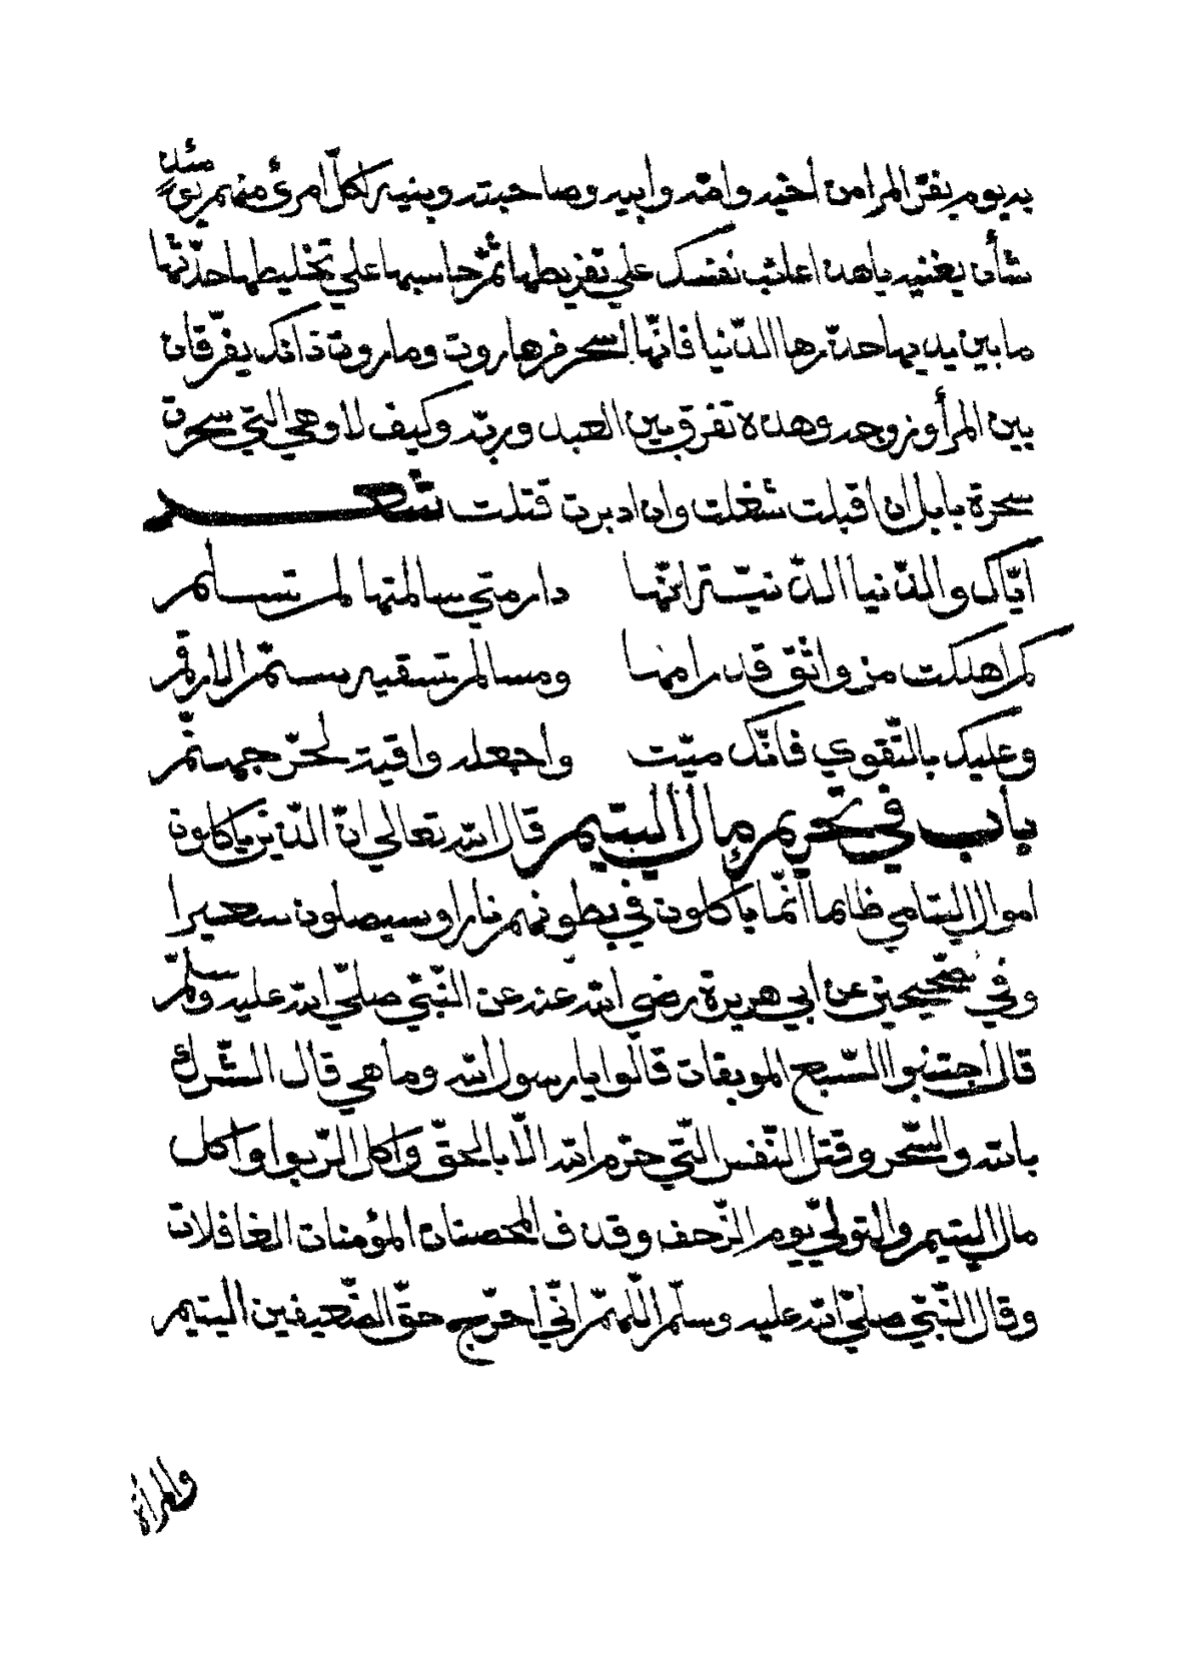 يه يوم يفرّ المرا من أخيه وامّه وابيه وصاحبته وبنيه لكلّ امرئ منهم يومئذ
شأن يغنيه ياهذا عاتب نفسك علي تفريطها ثمّ حاسبها علي تخليطها حدّثها
ما بين يديها حذّرها الدّنيا فانّها اسحر من هاروت وماروت ذانك يفرّقان
بين المرأ وزوجه وهذه تفرق بين العبد وربّه وكيف لا وهي التي سحرت
سحرة بابل ان اقبلت شغلت وان ادبرت قتلت شعـــر
ايّاك والدّنيا الدّنيّــة انّها دار متي سالمتها لم تسـالم
كم اهلكت من واثق قد رامها ومسالم تسقيه ســمّ الارقم
وعليك بالتّقوي فانّك ميّت واجعله واقية لحرّ جهنّم
باب في تحريم مال اليتيم قال الله تعالي انّ الّذين ياكلون
اموال اليتامي ظالما انّما ياكلون في بطونهم نارا وسيصلون سعيرا
وفي الصّحيحين عن ابي هريرة رضي الله عنه عن النّبيّ صلّي الله عليه وسلّم
قال اجتنبوا السّبع الموبقات قالوا يا رسول الله وما هي قال الشّرك
بالله والسّحر وقتل النّفس الّتي حرّم الله الّا بالحقّ واكل الرّبوا واكل
مال اليتيم والتولّي يوم الزّحف وقذف المحصنات المؤمنات الغافلات
وقال النّبيّ صلّي الله عليه وسلّم اللّهمّ انّي احرّج حقّ الضّعيفين اليتيم
والمرأة